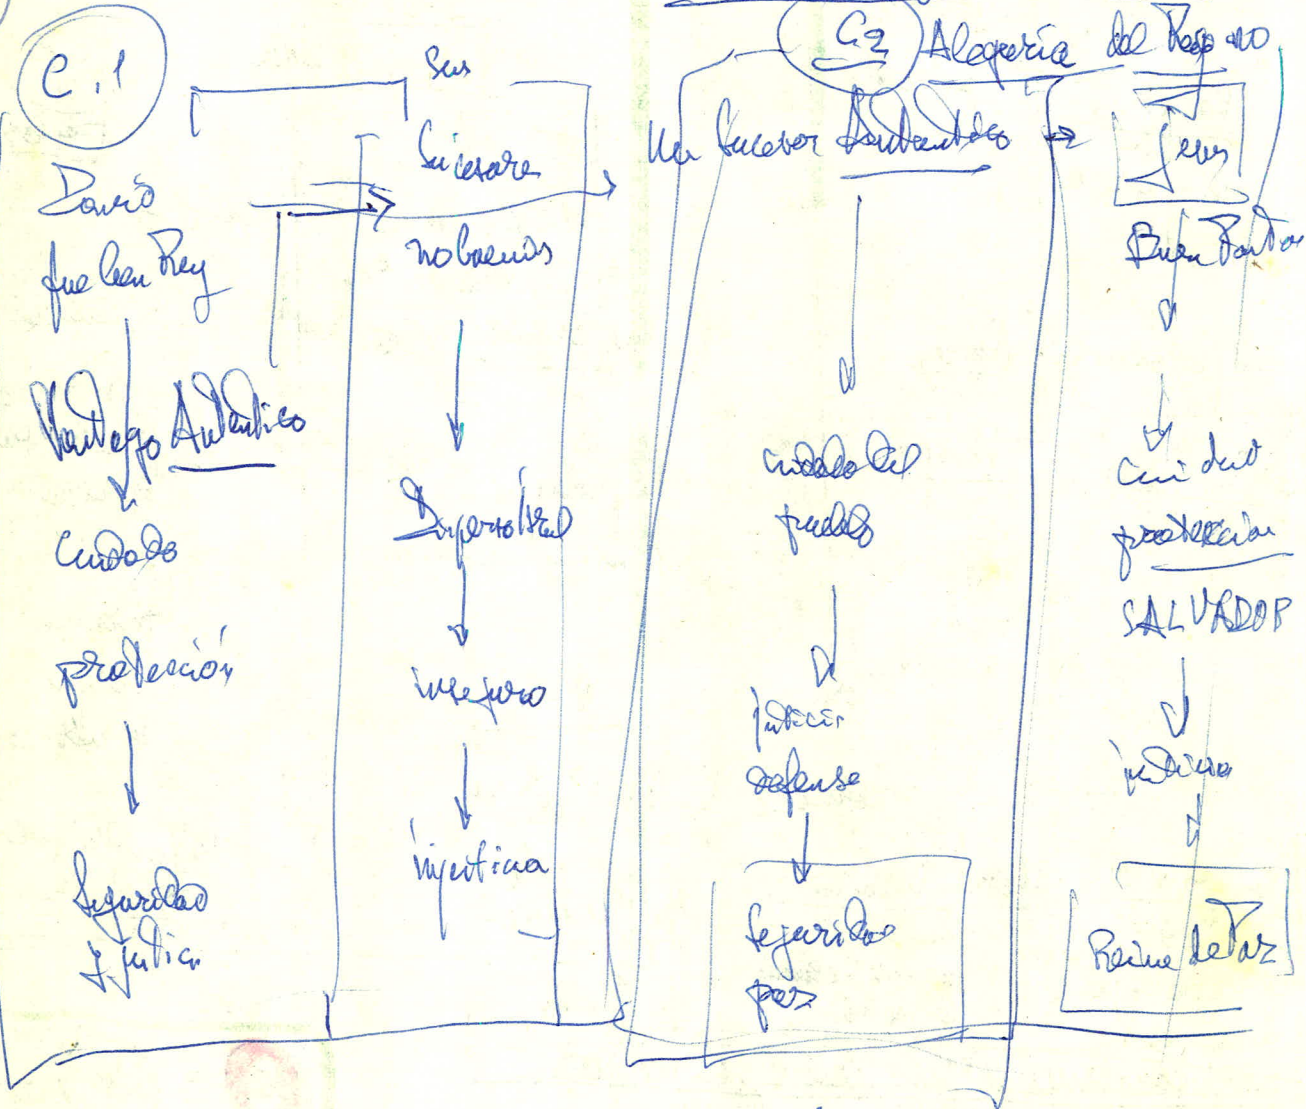 C.1
David
fue buen Rey
Autentico
Cuidado
protección
Seguridad
y justicia
Sus
Sucesores
no buenos
Disperso Israel
inseguro
injusticia
C2 Alegoria del
Un Sucesor Autentico
cuidado del
pueblo
justicia
defensa
Seguridad
paz
Jesus
Buen Pastor
Cuidado
protección
SALVADOR
justicia
de Paz